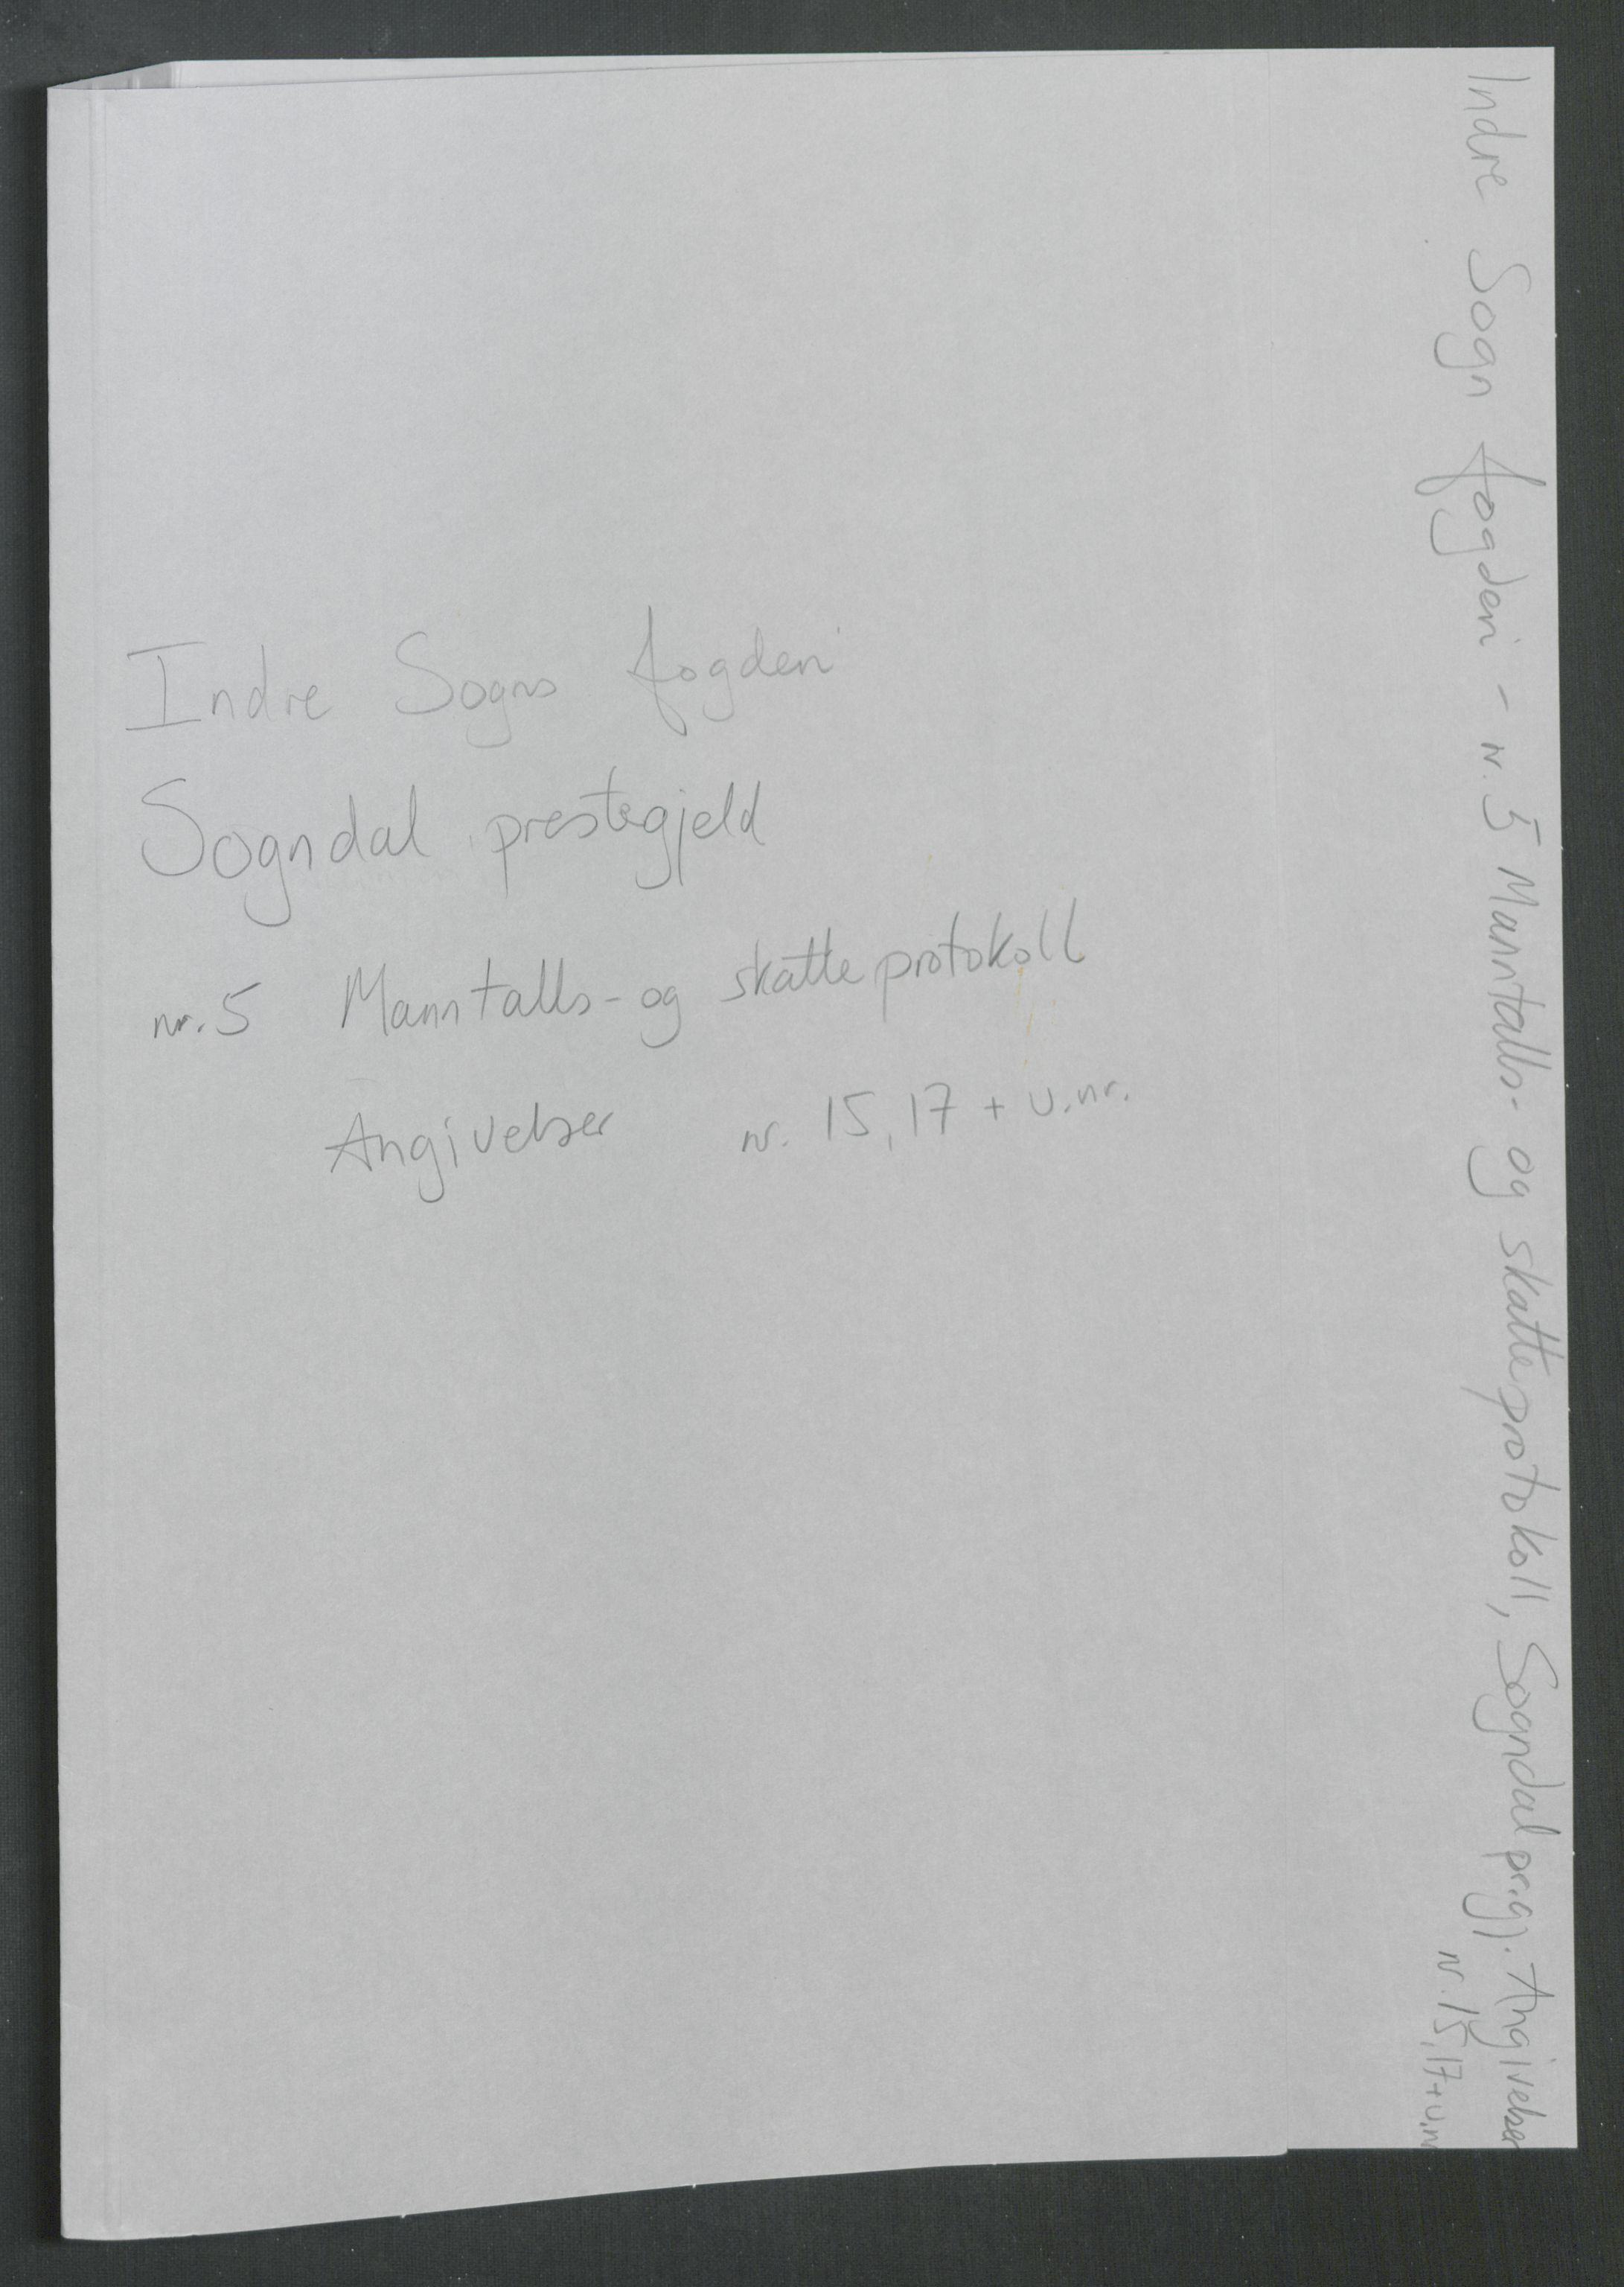 Indre Sogns fogderi
Sogndal prestegjeld
nr. 5 Manntalls- og skatteprotokoll
Angivelser nr. 15, 17 + u.nr.
Indre Sogn fogderi - nr. 5 Manntalls- og skatteprotokoll, Sogndal pr.gj. Angivelser
nr. 15, 17 + u.nr